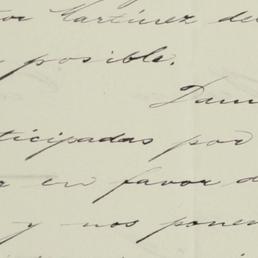 tor Martínez de
posible.
Dam
ticipadas por
en favor d
y nos ponem